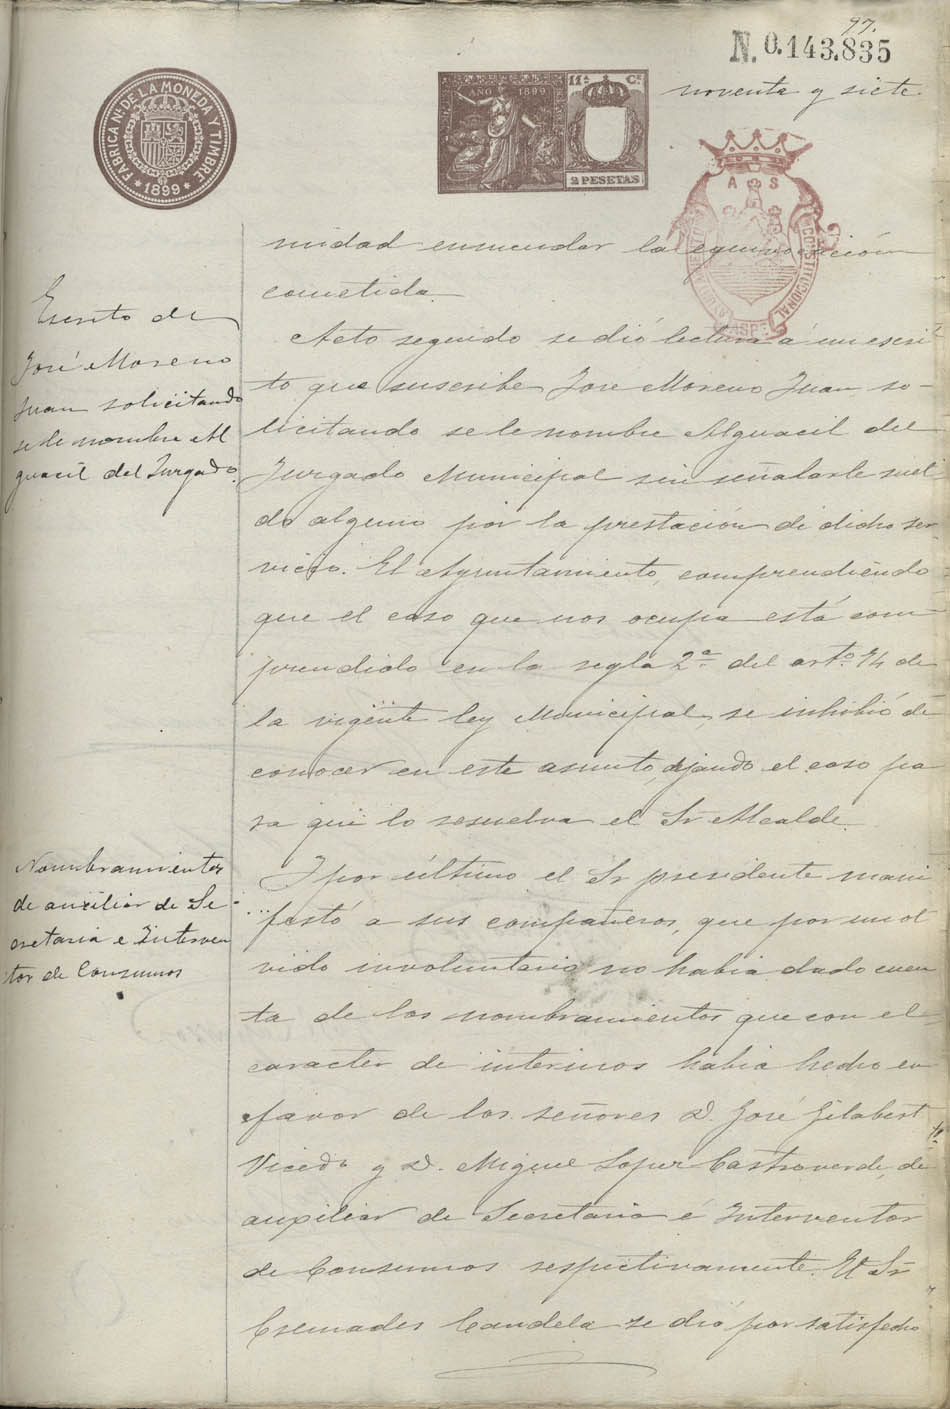 97.
N. 0.143.835
noventa y siete.
FABRICA NL. DE LA MONEDA Y TIMBRE
* 1899 *
AÑO 1899
11ª Cª
2 PESETAS
A S
CONSTITUCIONAL
ASPE
nidad enmendar la equivocación
cometida.
Escrito de
José Moreno
Juan solicitando
se le nombre Al
guacil del Juzgado.
Acto seguido se dió lectura á un escri
to que suscribe Jose Moreno Juan so-
licitando se le nombre Alguacil del
Juzgado Municipal sin señalarle suel
do alguno por la prestación de dicho ser
vicio. El Ayuntamiento, comprendiendo
que el caso que nos ocupa está com
prendido en la regla 2ª del artº 74 de
la vigente ley Municipal, se inhibió de
conocer en este asunto, dejando el caso pa
ra que lo resuelva el Sr Alcalde.
Nombramientos
de auxiliar de Se
cretaria e Interven
tor de Consumos
Y por último el Sr presidente mani
festó a sus compañeros, que por un ol
vido involuntario no habia dado cuen
ta de los nombramientos que con el
caracter de interinos habia hecho en
favor de los señores D. José Gilabert
Vicedo y D. Miguel Lopez Castroverde, de
auxiliar de Secretaria é Interventor
de Consumos respectivamente. El Sr
Cremades Candela se dió por satisfecho